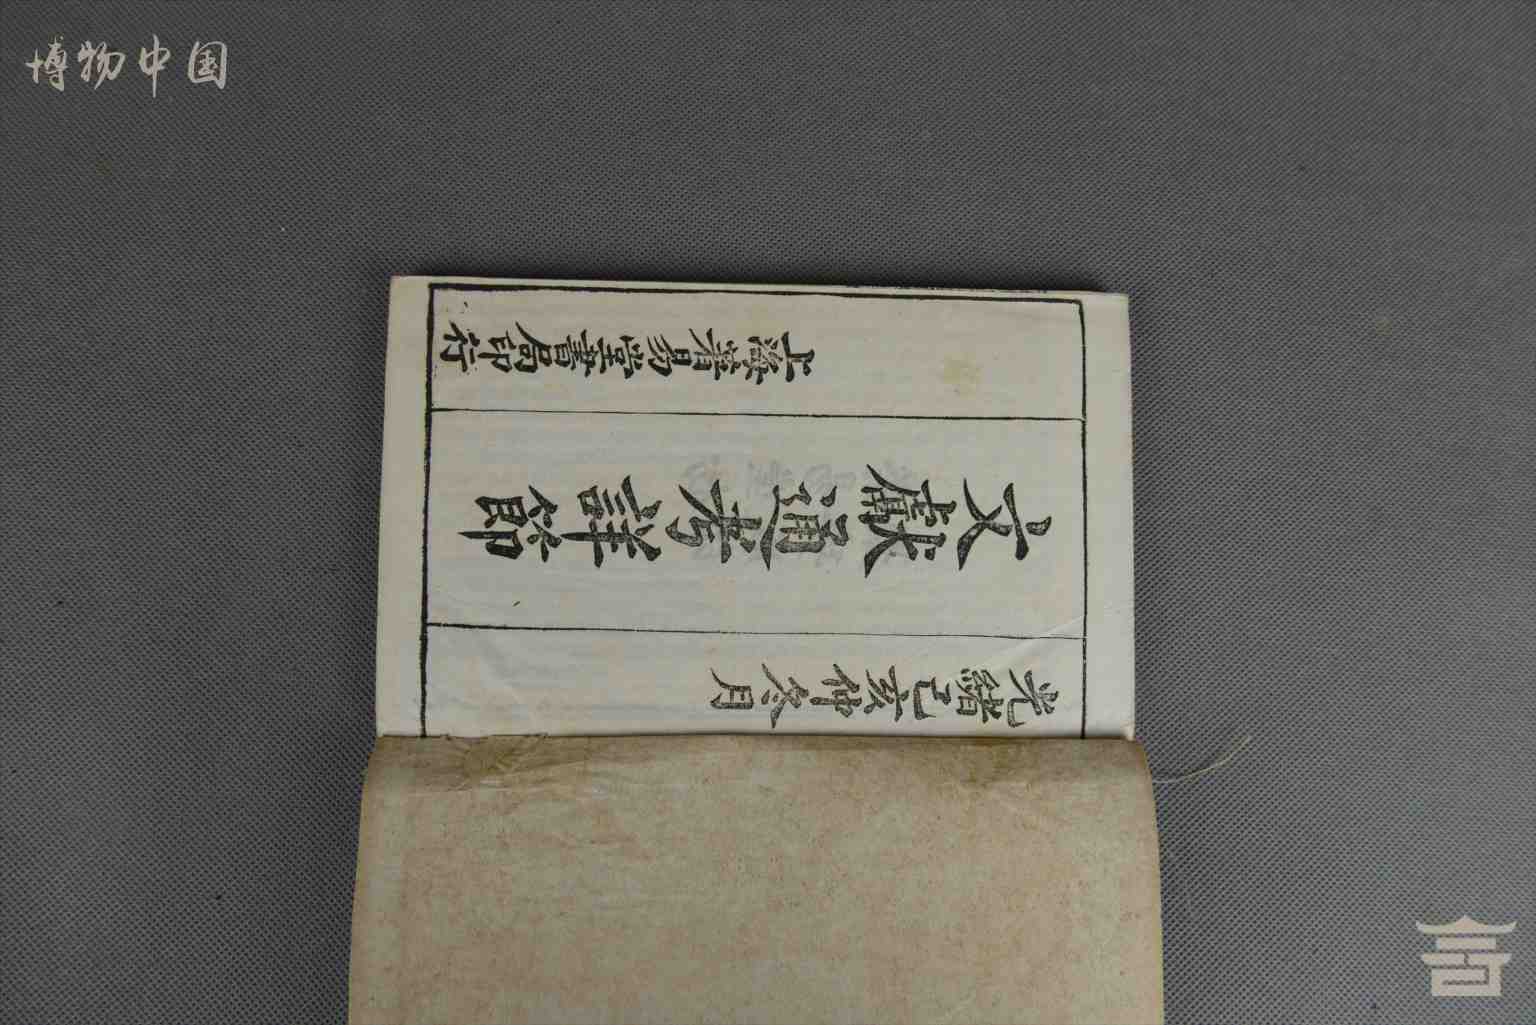 博物中国
光緒己亥仲冬月
文獻通考詳節
上海著易堂書局印行